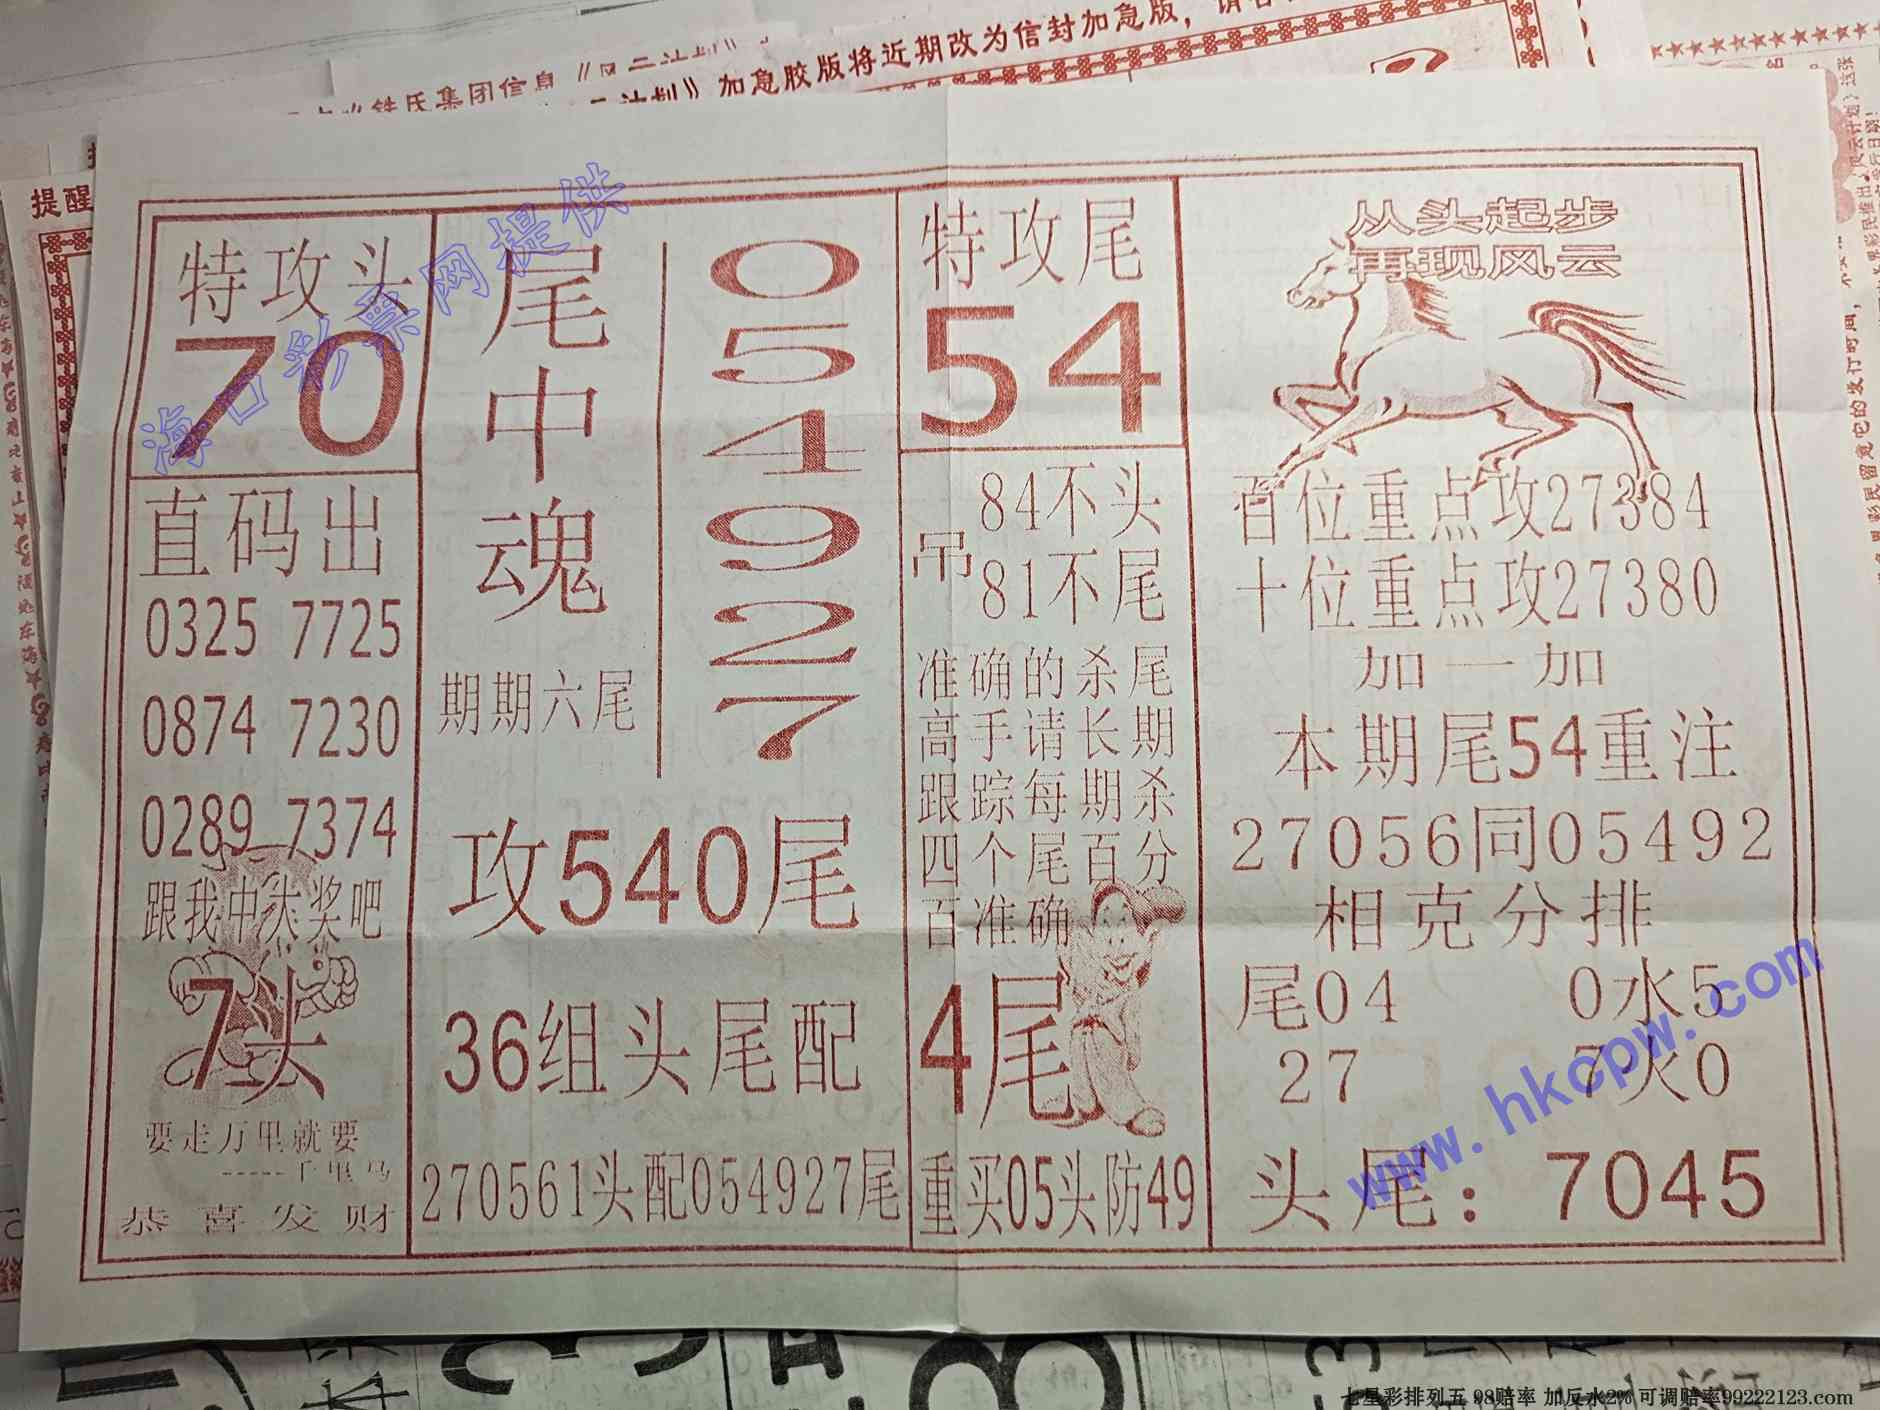 加急胶版将近期改为信封加急版，
集团信息
提醒
特攻头
70
直码出
0325 7725
0874 7230
0289 7374
跟我中大奖吧
7头
要走万里就要
-----千里马
恭喜发财
尾中魂
期期六尾
0
5
4
9
2
7
攻540尾
36组头尾配
270561头配054927尾
特攻尾
54
吊
84不头
81不尾
准确的杀尾
高手请长期
跟踪每期杀
四个尾百分
百准确
4尾
重买05头防49
从头起步
再现风云
百位重点攻27384
十位重点攻27380
加一加
本期尾54重注
27056同05492
相克分排
尾04 0水5
27 7火0
头尾：7045
海口彩票网提供
www.hkcpw.com
七星彩排列五 98赔率 加反水2% 可调赔率99222123.com